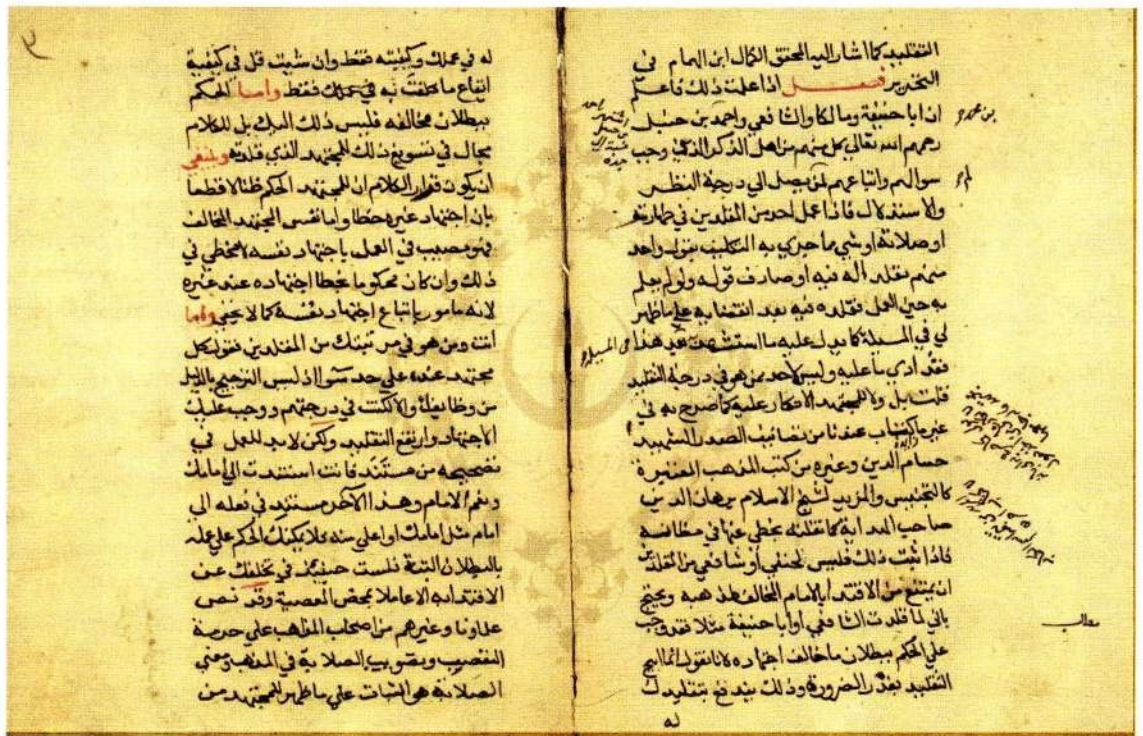 التقليد كما اشار اليه المحقق الكمال ابن الهمام في
التحرير فصل اذا علمت ذلك فاعلم
ان ابا حنيفة ومالكا والشافعي واحمد بن حنبل
رحمهم الله تعالى كل منهم من اهل الذكر الذين وجب
سوالهم واتباعهم لمن يصل الي درجة النظر
والاستدلال فاذا عمل احد من المقلدين في طهارته
او صلاته او شي مما جري به التكليف بقول واحد
منهم مقلدا له فيه او صادف قوله ولو لم يعلم
به حين العمل فقلده فيه بعد انقضايه علي ما ظهر
لي في المسيلة كما يدل عليه ما استشهدت بعد هذا
فقد ادي ما عليه وليس لاحد ممن هو في درجة التقليد
قلت بل ولا للمجتهد الانكار عليه كما صرح به في
غير ما كتاب عندنا من تصانيف الصدر الشهيد
حسام الدين وغيره من كتب المذهب المعتبرة
كالتجنيس والمزيد لشيخ الاسلام برهان الدين
صاحب الهداية كما نقلته بخطي عنها في مظانه
فاذا ثبت ذلك فليس لحنفي او شافعي من المقلدين
ان يمتنع من الاقتدا بالامام المخالف لمذهبه ويحتج
باني لما قلدت الشافعي او ابا حنيفة مثلا فقد وجب
علي الحكم ببطلان ما خالف اجتهاده لانا نقول انما ابيح
التقليد بقدر الضرورة وذلك يندفع بتقليدك
له
مطالب
له في عملك وكيفيته فقط وان شيت قل في كيفية
ايقاع ما كلفت به في عملك فقط واما الحكم
ببطلان مخالفه فليس ذلك اليك بل للكلام
مجال في تسويغ ذلك للمجتهد الذي قلدته وينبغي
ان يكون قرار الكلام ان للمجتهد الحكم ظنا لا قطعا
بان اجتهاد غيره خطا واما نفس المجتهد المخالف
فهو مصيب في العمل باجتهاد نفسه لا مخطي في
ذلك وان كان محكوما بخطا اجتهاده عند غيره
لانه مامور باتباع اجتهاد نفسه كما لا يخفي واما
انت ومن هو في مرتبتك من المقلدين فقول كل
مجتهد عنده علي حد سوا اذ ليس الترجيح بالدليل
من وظايفك والا لكنت في درجتهم ووجب عليك
الاجتهاد وارتفع التقليد ولكن لا بد للعمل في
تصحيحه من مستند فانت استندت الي امامك
ونعم الامام وهذا الآخر مستند في فعله الي
امام مثل امامك او اعلي منه فلا يمكنك الحكم علي عمله
بالبطلان البتة فلست حينيذ في تخلفك عن
الاقتدا به الا عاملا بمحض العصبية وقد نص
علماونا وغيرهم من اصحاب المذاهب علي حرمة
التعصب وتصويب الصلابة في المذهب ومعني
الصلابة هو الثبات علي ما ظهر للمجتهد من